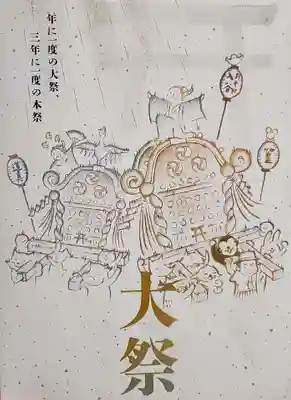 年に一度の大祭、
三年に一度の本祭
大祭